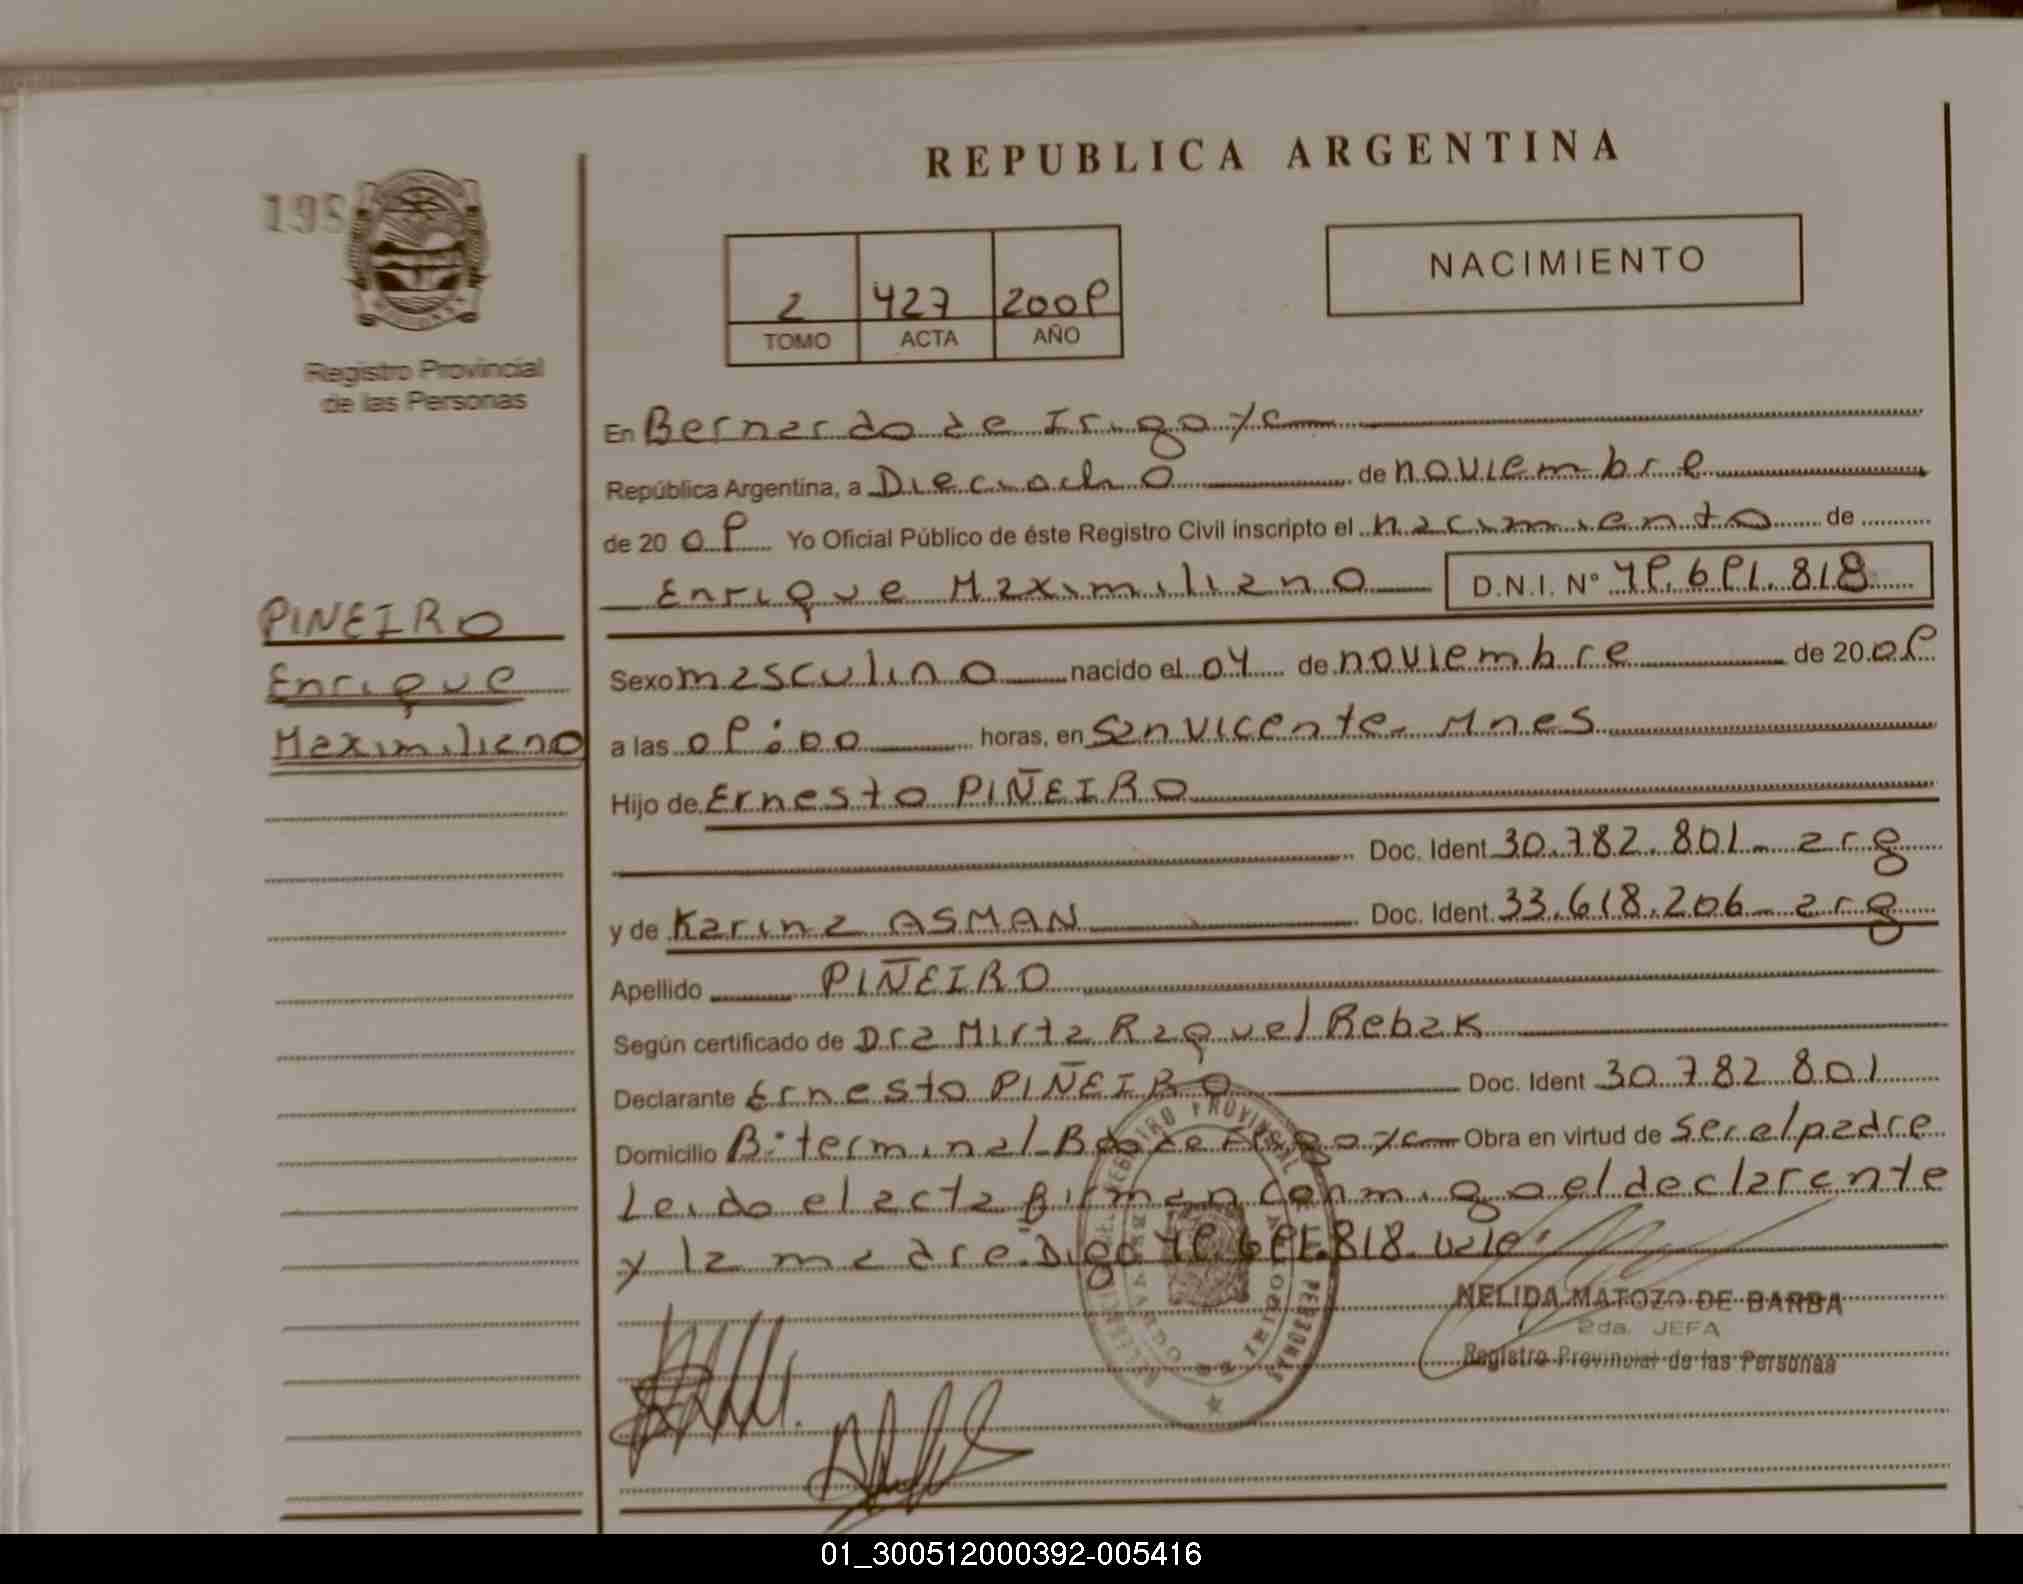 REPUBLICA ARGENTINA
195
2 427 2009
TOMO ACTA AÑO
NACIMIENTO
Registro Provincial
de las Personas
En Bernardo de Irigoye
República Argentina, a Dieciocho de noviembre
de 20 09 Yo Oficial Público de éste Registro Civil inscripto el nacimiento de
Enrique Maximiliano D.N.I. Nº 49.691.818
PINEIRO
Enrique
Maximiliano
Sexo masculino nacido el 04 de noviembre de 20 09
a las 09:00 horas, en San Vicente - Mnes
Hijo de Ernesto PIÑEIRO
Doc. Ident 30.782.801 - arg
y de Karina ASMAN Doc. Ident. 33.618.206 - arg
Apellido PIÑEIRO
Según certificado de Dra Mirta Raquel Rebak
Declarante Ernesto PIÑEIRO Doc. Ident 30.782.801
Domicilio B: terminal - Bdo de Irigoye Obra en virtud de ser el padre
Leido el acta firman conmigo el declarante
y la madre. Digo 49.691.818. vale.
REGISTRO PROVINCIAL PERSONAS
NELIDA MATOZO DE BARBA
2da. JEFA
Registro Provincial de las Personas
01_300512000392-005416